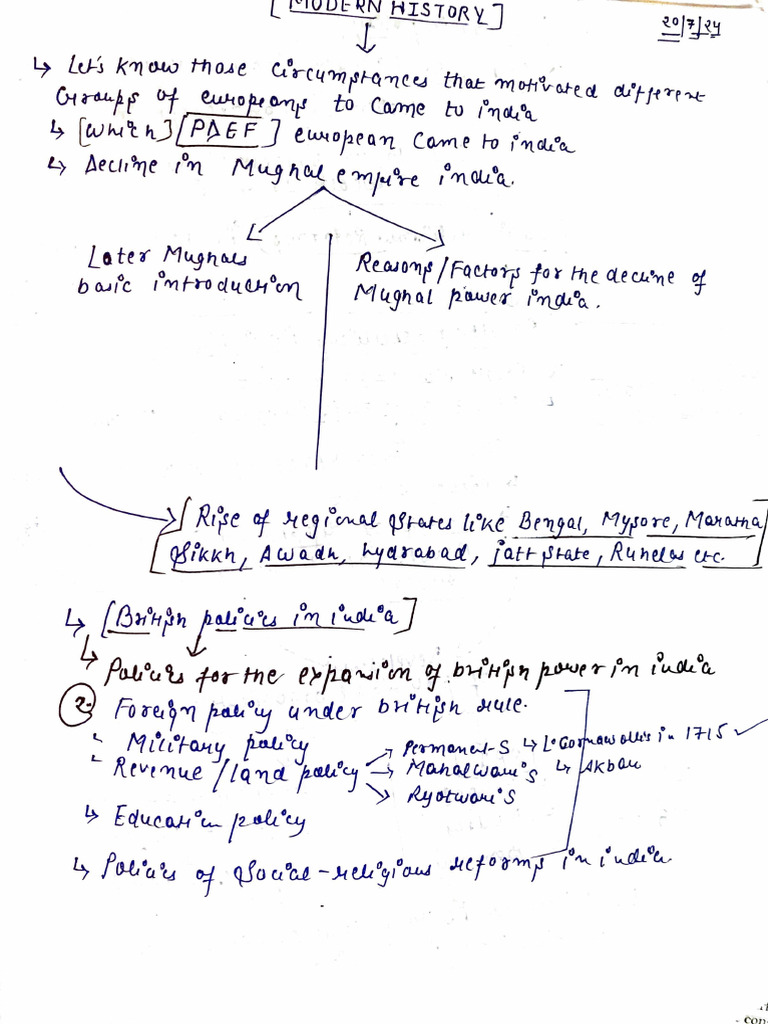 [MODERN HISTORY]
20/7/24
↳ Let's know those circumstances that motivated different
Groups of europeans to came to india
↳ [which] [PDEF] european came to india
↳ Decline in Mughal empire india.
Later Mughals
basic introduction
Reasons/Factors for the decline of
Mughal power india.
Rise of regional states like Bengal, Mysore, Maratha
Sikkh, Awadh, hydrabad, jatt state, Ruhelas etc.
↳ [British policies in india]
↳ Policies for the expansion of british power in india
2. Foreign policy under british rule.
Military policy
Revenue/land policy
Permanent-S ↳ L.Cornawallis in 1715 ✓
Mahalwari S ↳ Akbar
Ryotwari S
↳ Education policy
↳ Policies of social-religious reforms in india.
con